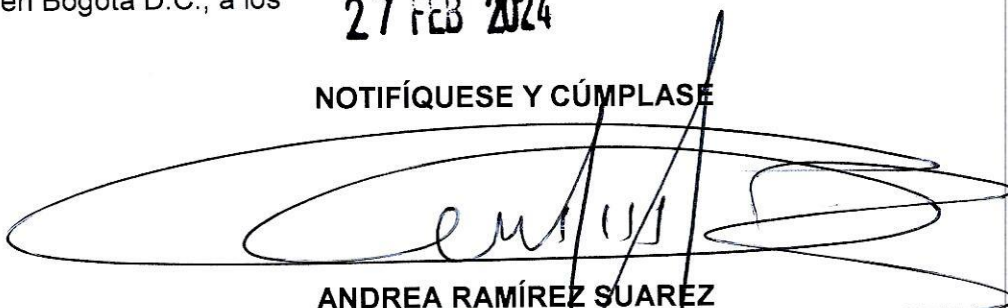 en Bogotá D.C., a los
27 FEB 2024
NOTIFÍQUESE Y CÚMPLASE
ANDREA RAMÍREZ SUAREZ